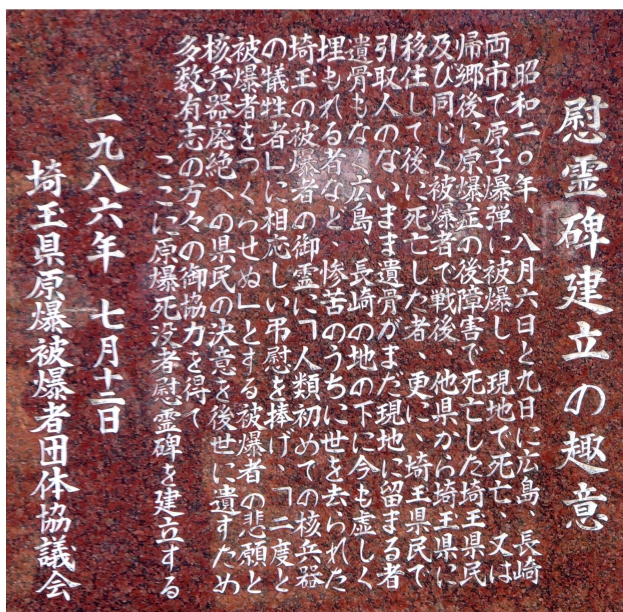 慰霊碑建立の趣意
昭和二〇年、八月六日と九日に広島、長崎
両市で原子爆弾に被爆し、現地で死亡、又は
帰郷後に原爆症の後障害で死亡した埼玉県民
及び同じく被爆者で戦後、他県から埼玉県に
移住して後に死亡した者、更に、埼玉県民で
引取人のないまま遺骨がまだ現地に留まる者
遺骨もなく広島、長崎の地の下に今も虚しく
埋もれる者など、惨苦のうちに世を去られた
埼玉の被爆者の御霊に「人類初めての核兵器
の犠牲者」に相応しい弔慰を捧げ、「二度と
被爆者をつくらせぬ」とする被爆者の悲願と
核兵器廃絶への県民の決意を後世に遺すため
多数有志の方々の御協力を得て
ここに原爆死没者慰霊碑を建立する
一九八六年 七月十二日
埼玉県原爆被爆者団体協議会